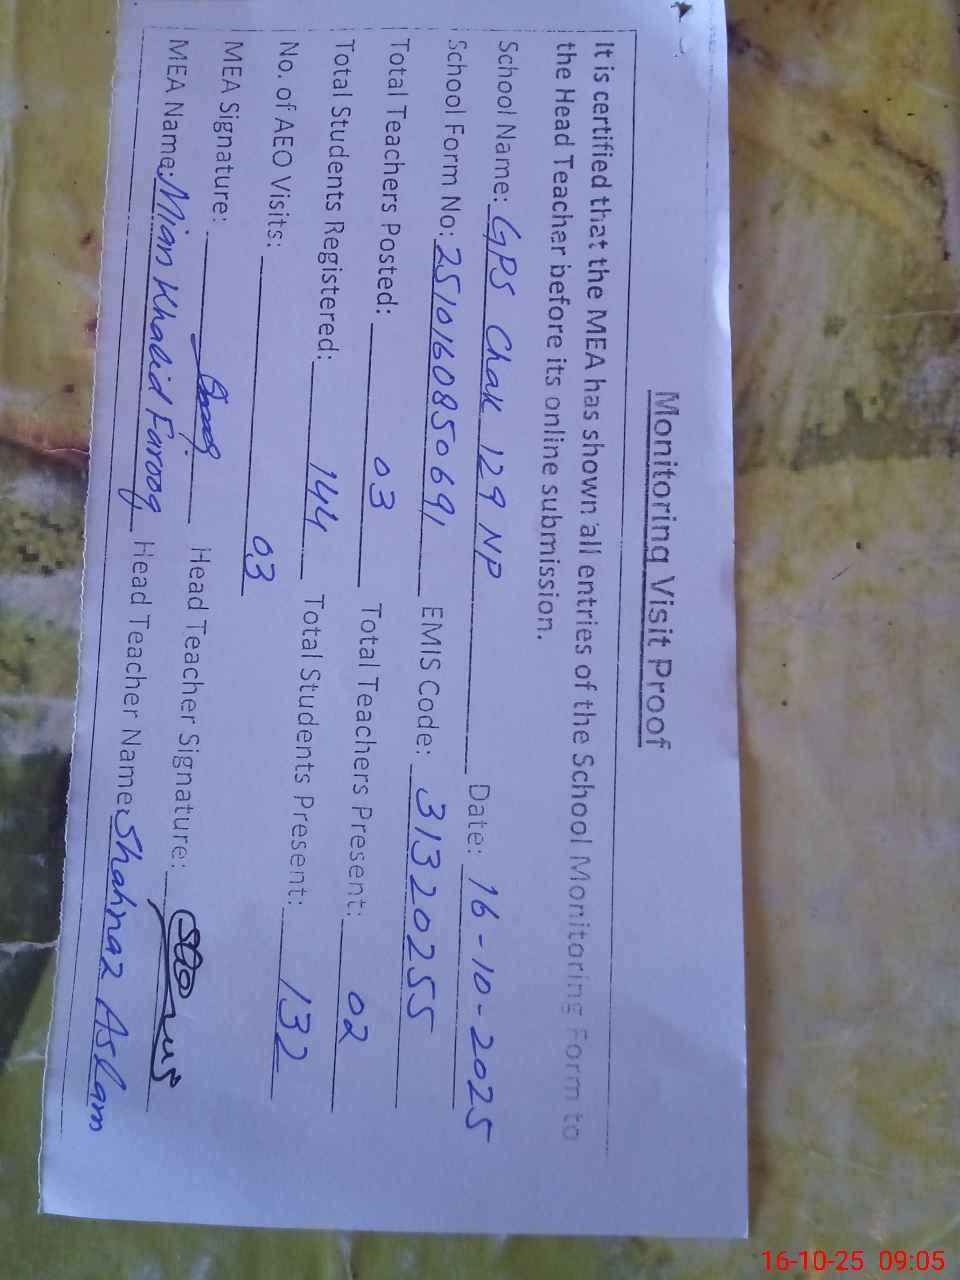 Monitoring Visit Proof
It is certified that the MEA has shown all entries of the School Monitoring Form to
the Head Teacher before its online submission.
School Name: GPS Chak 129 NP Date: 16-10-2025
School Form No: 2510160850691 EMIS Code: 31320255
Total Teachers Posted: 03 Total Teachers Present: 02
Total Students Registered: 144 Total Students Present: 132
No. of AEO Visits: 03
MEA Signature: Head Teacher Signature:
MEA Name: Mian Khalid Farooq Head Teacher Name: Shahnaz Aslam
16-10-25 09:05